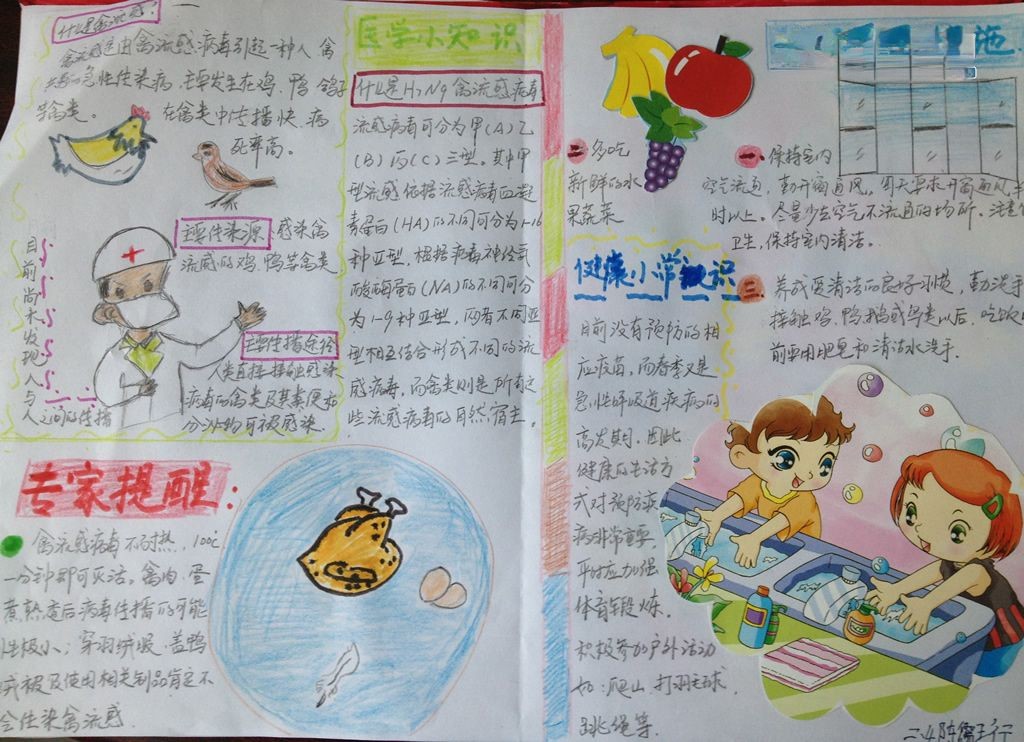 什么是禽流感?
禽流感是由禽流感病毒引起一种人禽
急性传染病,主要发生在鸡、鸭、鸽子
等禽类。在禽类中传播快,病
死率高。
主要传染源:感染禽
流感的鸡、鸭等禽类
目前尚未发现人与
人之间的传播
主要传播途径
人类直接接触感染
病毒的禽类及其粪便和
分泌物可被感染.
专家提醒:
禽流感病毒不耐热,100℃
一分钟即可灭活。禽肉、蛋
煮熟煮后病毒传播的可能
性极小;穿羽绒服、盖鸭
绒被及使用相关制品肯定不
会传染禽流感.
医学小知识
什么是H7N9禽流感病毒
流感病毒可分为甲(A)乙
(B)丙(C)三型。其中甲
型流感依据流感病毒血凝
素蛋白(HA)的不同可分为1-16
种亚型,根据病毒神经氨
酸酶蛋白(NA)的不同可分
为1-9种亚型,两者不同亚
型相互结合形成不同的流
感病毒,而禽类则是所有这
些流感病毒的自然宿主.
施
一.保持室内
空气流通,勤开窗通风,
时以上。尽量少去空气不流通的场所,注意
卫生,保持室内清洁。
二多吃
新鲜的水
果蔬菜
三.养成爱清洁的良好习惯,勤洗手
接触鸡、鸭、鹅或鸟类以后、吃饭
前要用肥皂和清洁水洗手.
健康小常识
目前没有预防的相
应疫苗,而春季又是
急性呼吸道疾病的
高发期,因此
健康的生活方
式对预防疾
病非常重要.
平时应加强
体育锻炼.
积极参加户外活动
如:爬山、打羽毛球、
跳绳等.